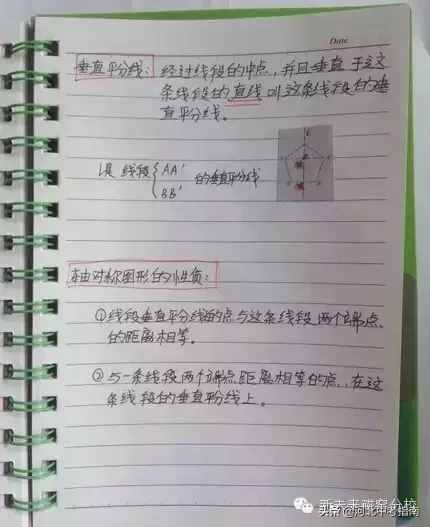 Date
垂直平分线：经过线段的中点，并且垂直于这
条线段的直线叫这条线段的垂
直平分线。
l是线段{AA'
BB'
的垂直平分线
轴对称图形的性质：
①线段垂直平分线的点与这条线段两个端点
的距离相等。
②与一条线段两个端点距离相等的点，在这
条线段的垂直平分线上。
新未来
头条@河北中考指南